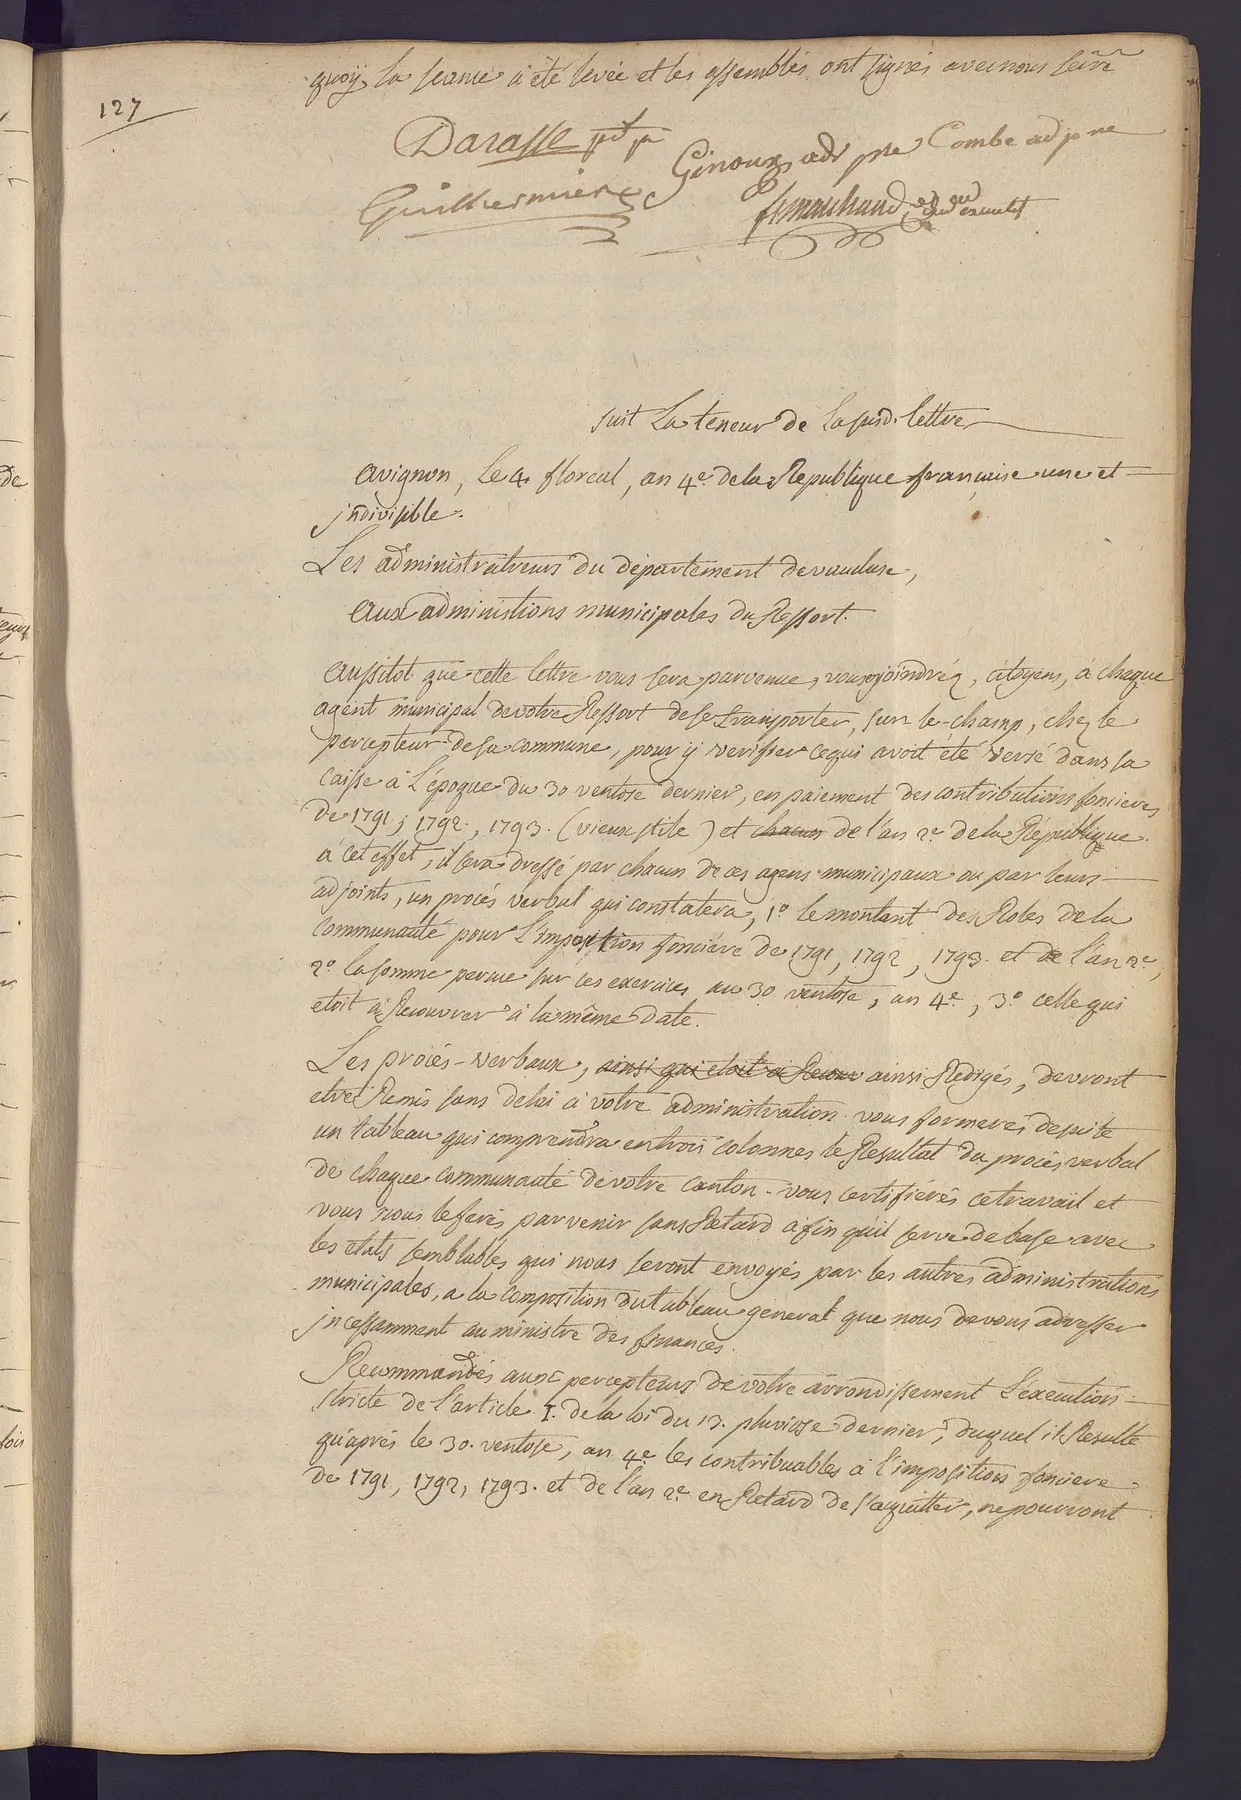 quoÿ la seance a été levée et les assemblés ont signés avec nous secre
127
Darasse pdt
Ginoux adj pre Combe adj ne
Guilhermier
fs marchand
suit La teneur de La susd. lettre
avignon, le 4 floreal, an 4e. de la Republique francaise une et
indivisible.
Les administrateurs du département de vaucluse,
aux administions municipales du Ressort.
aussitot que cette lettre vous sera parvenue, vous enjoindréz, citoyens, à chaque
agent municipal de votre Ressort de se transporter, sur le-champ, chez le
percepteur de sa commune, pour ÿ verifier ce qui avoit été versé dans sa
caisse à L'époque du 30 ventose dernier, en paiement des contributions foncieres
de 1791, 1792., 1793. (vieux stile) et chacun de l'an 2e. de la République.
à cet effet, il sera dressé par chacun de ces agens municipaux ou par leurs
adjoints, un procés verbal qui constatera, 1o. le montant des Roles de la
communauté pour L'imposition fonciére de 1791, 1792, 1793. et de l'an 2e.,
2o. la somme percue sur ces exercices au 30 ventose, an 4e., 3o. celle qui
etoit à Recouvrer à la même date.
Les procés-verbaux, ainsi qui etoit à Recouv ainsi Redigés, devront
etre Remis sans delai à votre administration. vous formerés de suite
un tableau qui comprendra en trois colonnes le Resultat du procés verbal
de chaque communauté de votre canton. vous certifiérés ce travail et
vous nous le ferés parvenir sans Retard afin qu'il serve de base avec
les etats semblables qui nous seront envoyés par les autres administrations
municipales, a la composition du tableau general que nous devons adresser
incessamment au ministre des finances.
Recommandés aux percepteurs de votre arrondissement L'exécution
stricte de l'article I. de la loi du 13. pluviose dernier, duquel il Resulte
qu'après le 30. ventose, an 4e. les contribuables à l'imposition fonciere
de 1791, 1792, 1793. et de l'an 2e. en Retard de s'aquitter, ne pourront